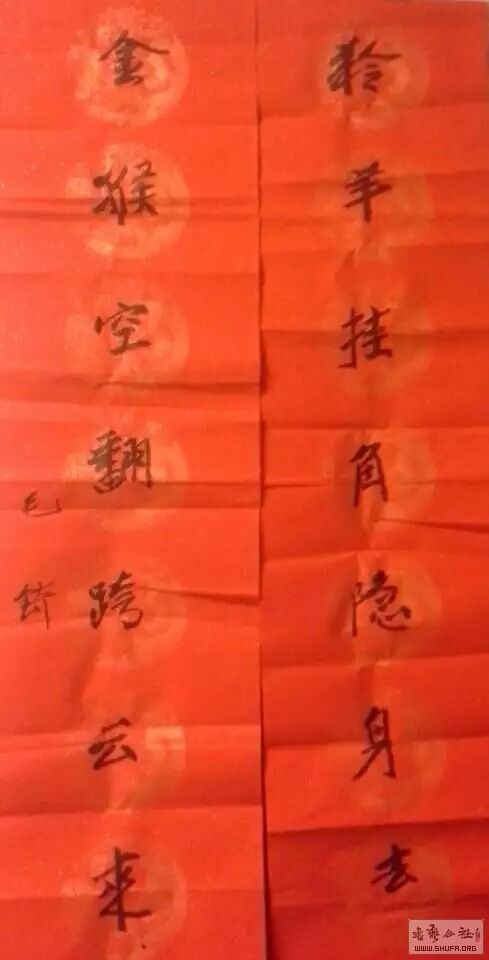 羚羊挂角隐身去
金猴空翻跨云来
毛
书艺公社
WWW.SHUFA.ORG